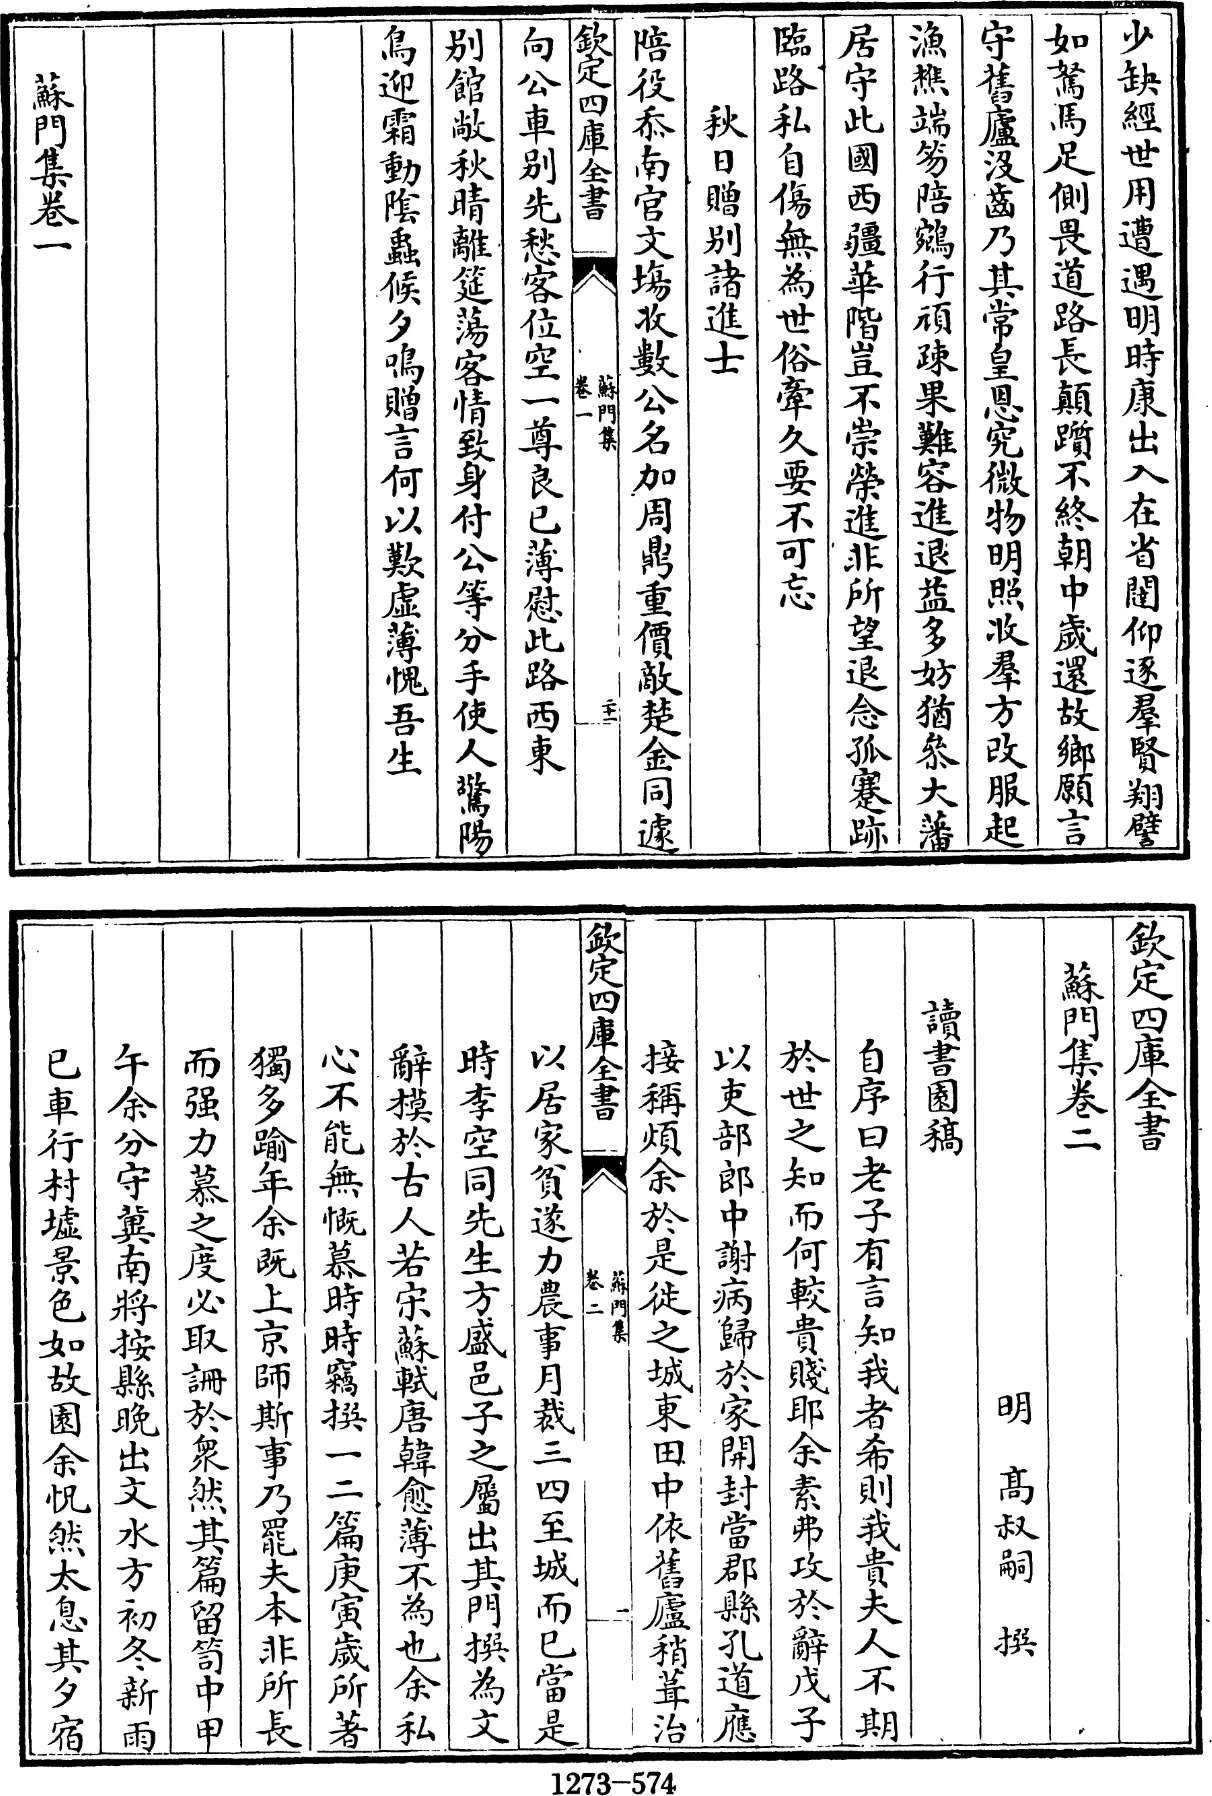 少缺經世用遭遇明時康出入在省闥仰逐羣賢翔譬
如駑馬足側畏道路長顛躓不終朝中歲還故鄉願言
守舊廬沒齒乃其常皇恩究微物明照收羣方改服起
漁樵端笏陪鵷行頑疎果難容進退益多妨猶叅大藩
居守此國西疆華階豈不崇榮進非所望退念孤蹇跡
臨路私自傷無為世俗牽久要不可忘
秋日贈別諸進士
陪役忝南宫文場收數公名加周鼎重價敵楚金同遽
欽定四庫全書
蘇門集
卷一
二十一
向公車別先愁客位空一尊良已薄慰此路西東
別館敞秋晴離筵蕩客情致身付公等分手使人驚陽
鳥迎霜動陰蟲候夕鳴贈言何以歎虛薄愧吾生
蘇門集卷一
欽定四庫全書
蘇門集卷二
明 高叔嗣 撰
讀書園稿
自序曰老子有言知我者希則我貴夫人不期
於世之知而何較貴賤耶余素弗攻於辭戊子
以吏部郎中謝病歸於家開封當郡縣孔道應
接稱煩余於是徙之城東田中依舊廬稍葺治
欽定四庫全書
蘇門集
卷二
一
以居家貧遂力農事月裁三四至城而已當是
時李空同先生方盛邑子之屬出其門撰為文
辭摸於古人若宋蘇軾唐韓愈薄不為也余私
心不能無慨慕時時竊撰一二篇庚寅歲所著
獨多踰年余既上京師斯事乃罷夫本非所長
而强力慕之度必取誚於衆然其篇留笥中甲
午余分守冀南將按縣晚出文水方初冬新雨
已車行村墟景色如故園余怳然太息其夕宿
1273-574